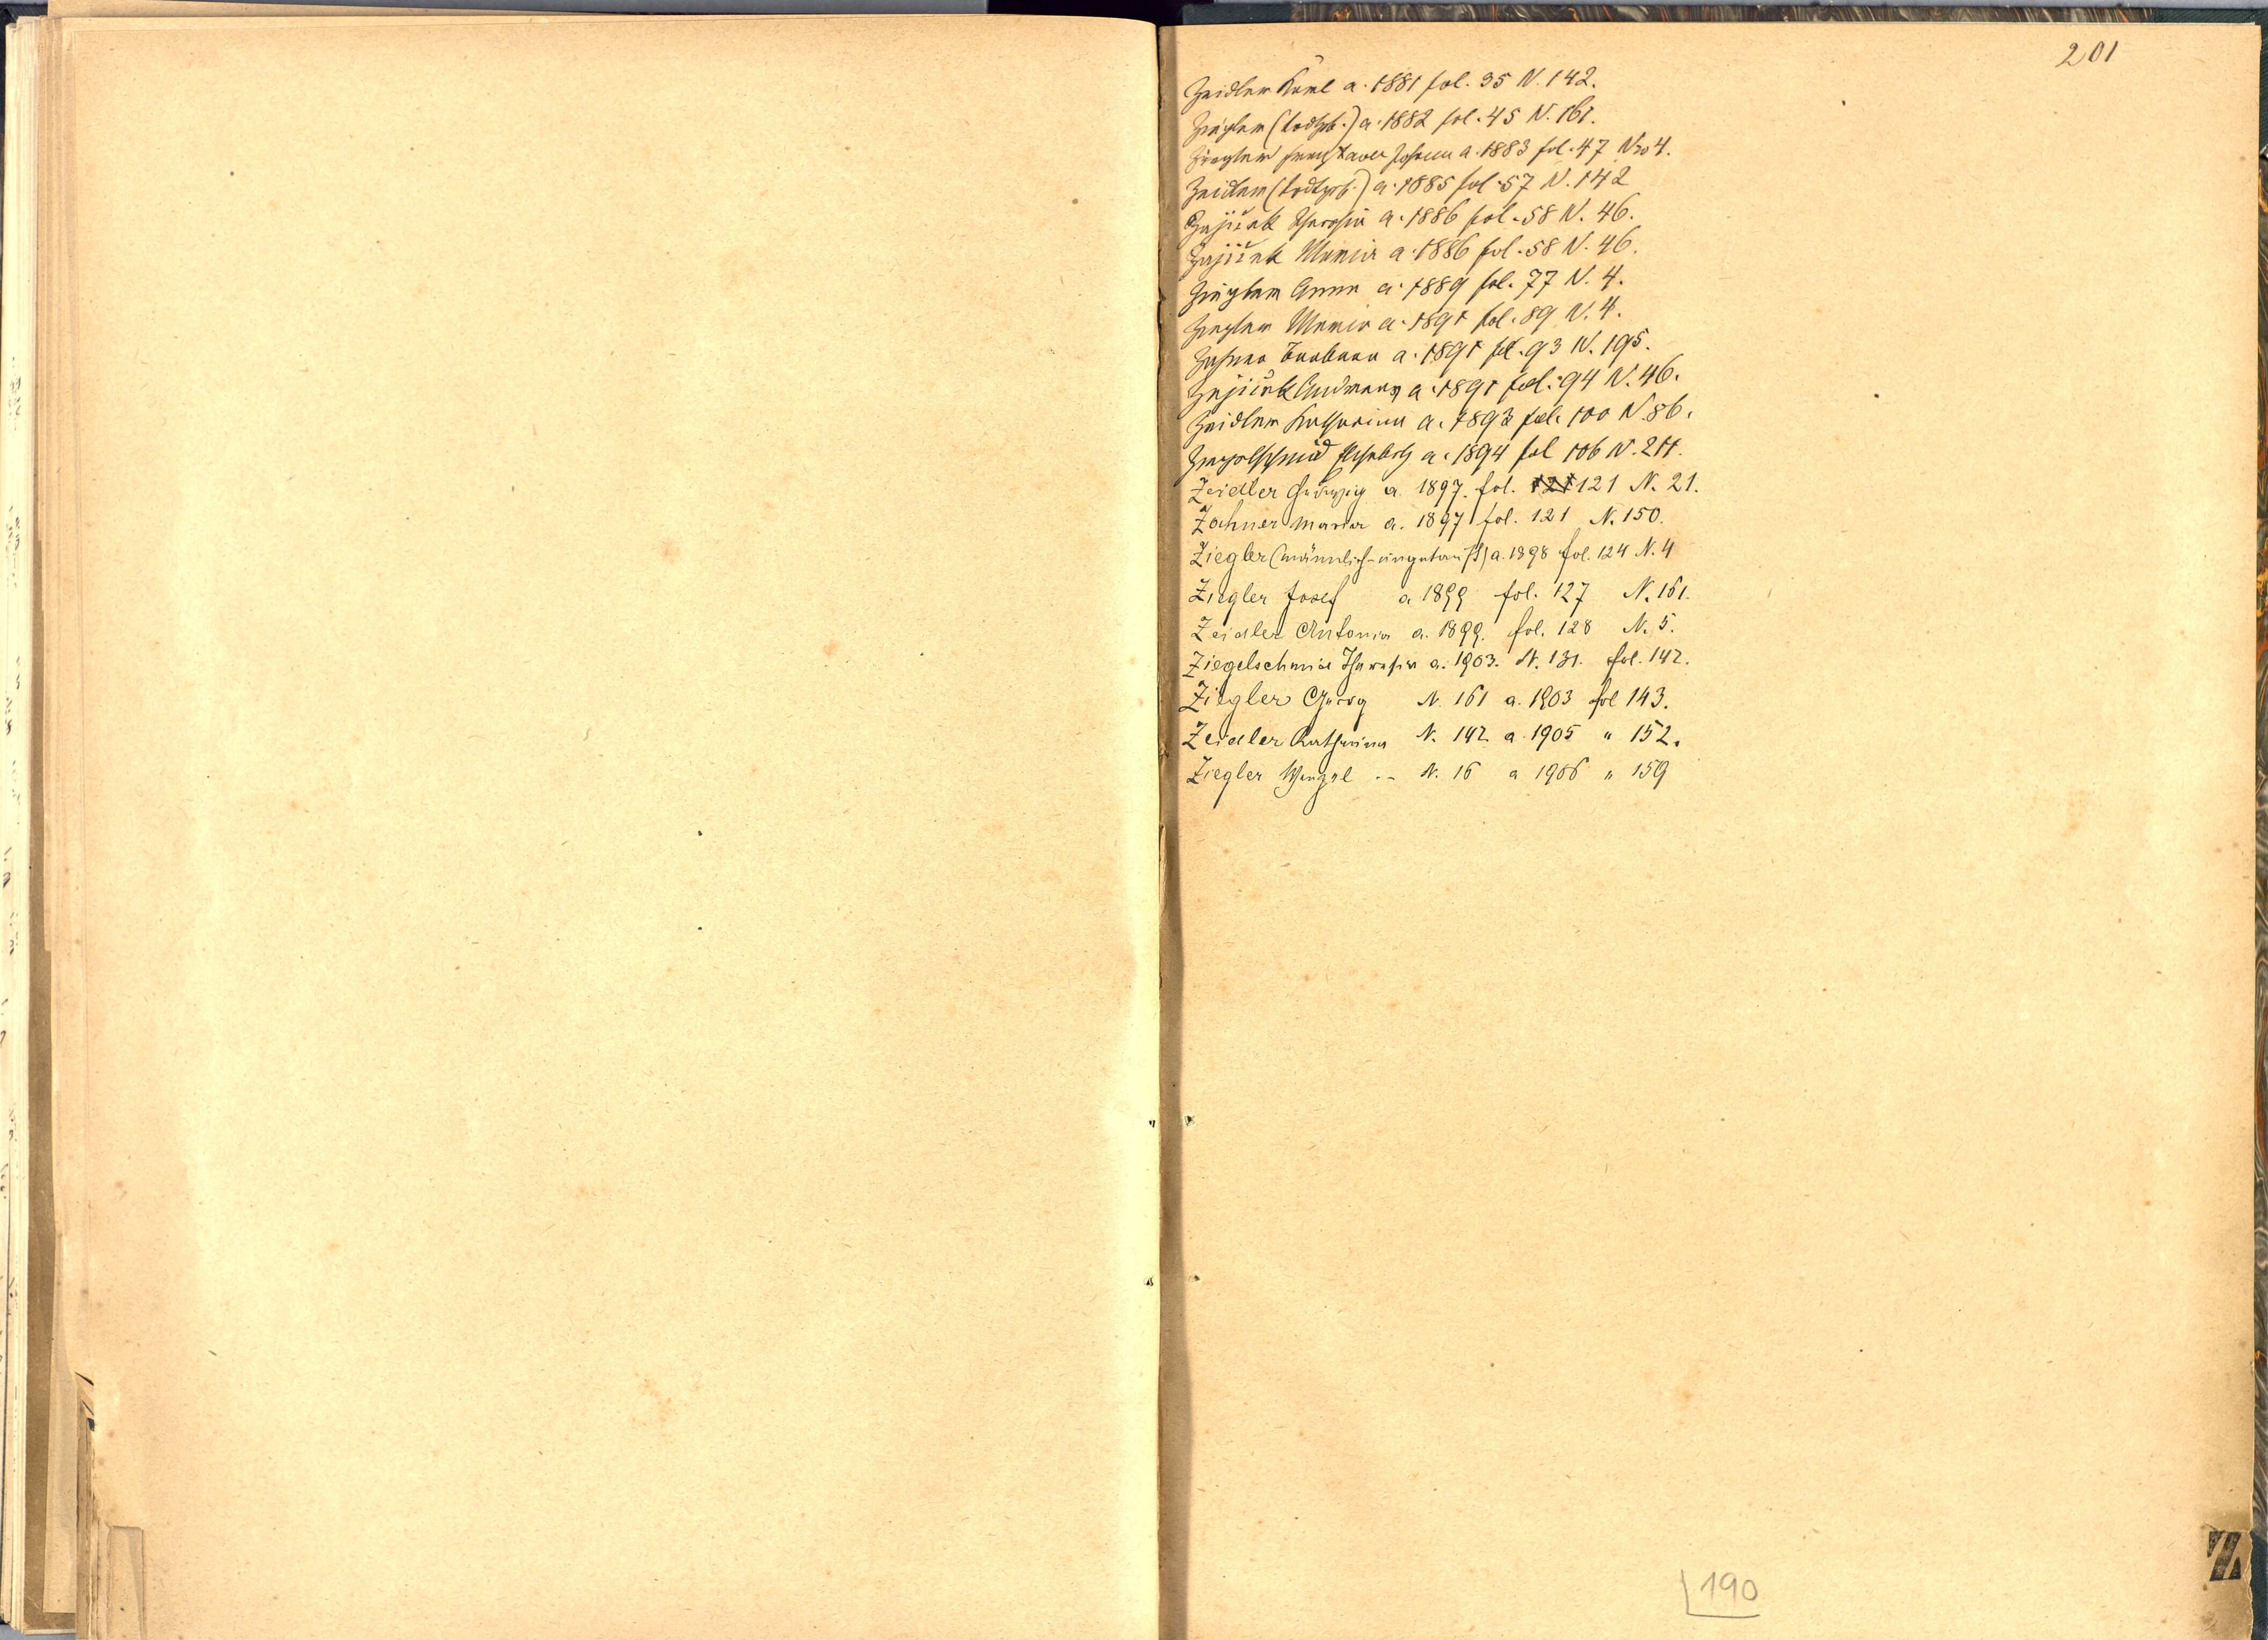 201
Zeidler Karl a. 1881 fol. 35 N. 142.
Ziegler (todtgeb.) a. 1882 fol. 45 N. 161.
Ziegler Franz Xaver Johann a. 1883 fol. 47 Nro 4.
Zeidler (todtgeb.) a. 1885 fol. 57 N. 142
Zajiček Theresia a. 1886 fol. 58 N. 46.
Zajiček Maria a. 1886 fol. 58 N. 46.
Ziegler Anna a. 1889 fol. 77 N. 4.
Ziegler Maria a. 1891 fol. 89 N. 4.
Zahner Barbara a. 1891 fol. 93 N. 195.
Zajiček a. 1891 fol. 94 N. 46.
Zeidler Katharina a. 1893 fol. 100 N. 86.
Ziegelschmid Elisabeth a. 1894 fol 106 N. 211.
Zeidler Hedwig a. 1897. fol. 121 121 N. 21.
Zahner Maria a. 1897 fol. 121 N. 150.
Ziegler (männlich-ungetauft) a. 1898 fol. 124 N. 4
Ziegler Josef a 1899 fol. 127 N. 161.
Zeidler Antonia a. 1899. fol. 128 N. 5.
Ziegelschmid Theresia a. 1903. N. 131. fol. 142.
Ziegler Georg N. 161 a. 1903 fol 143.
Zeidler Katharina N. 142 a 1905 " 152.
Ziegler Wenzel -- N. 16 a 1906 " 159
190
Z